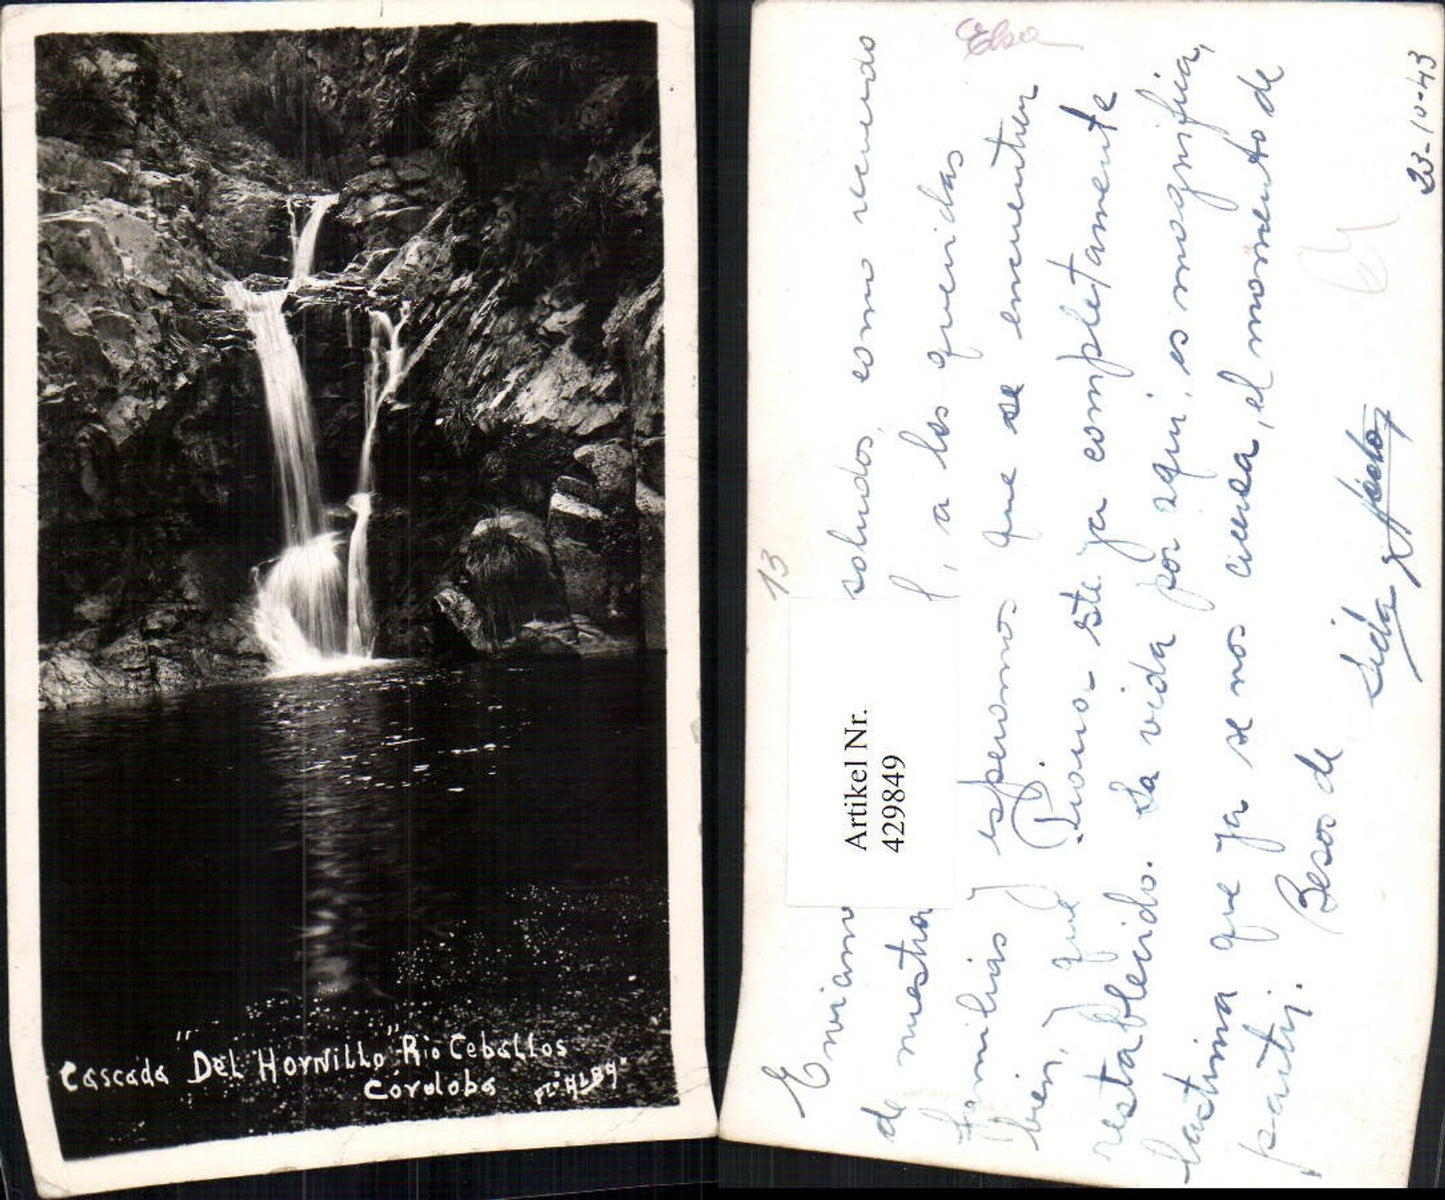 Cascada "Del Hornillo" Rio Ceballos
Córdoba Ft. "ALBA"
Elsa
13
Artikel Nr.
429849
Enviamo saludos, como recuerdo
de nuestra l, a los queridas
familias y esperamos que se encuentren
bien, y que este ya completamente
restablecido. La vida por aqui, es magnifica,
lastima que ya se nos cerca, el momento de
partir.
Besos de
23-10-43